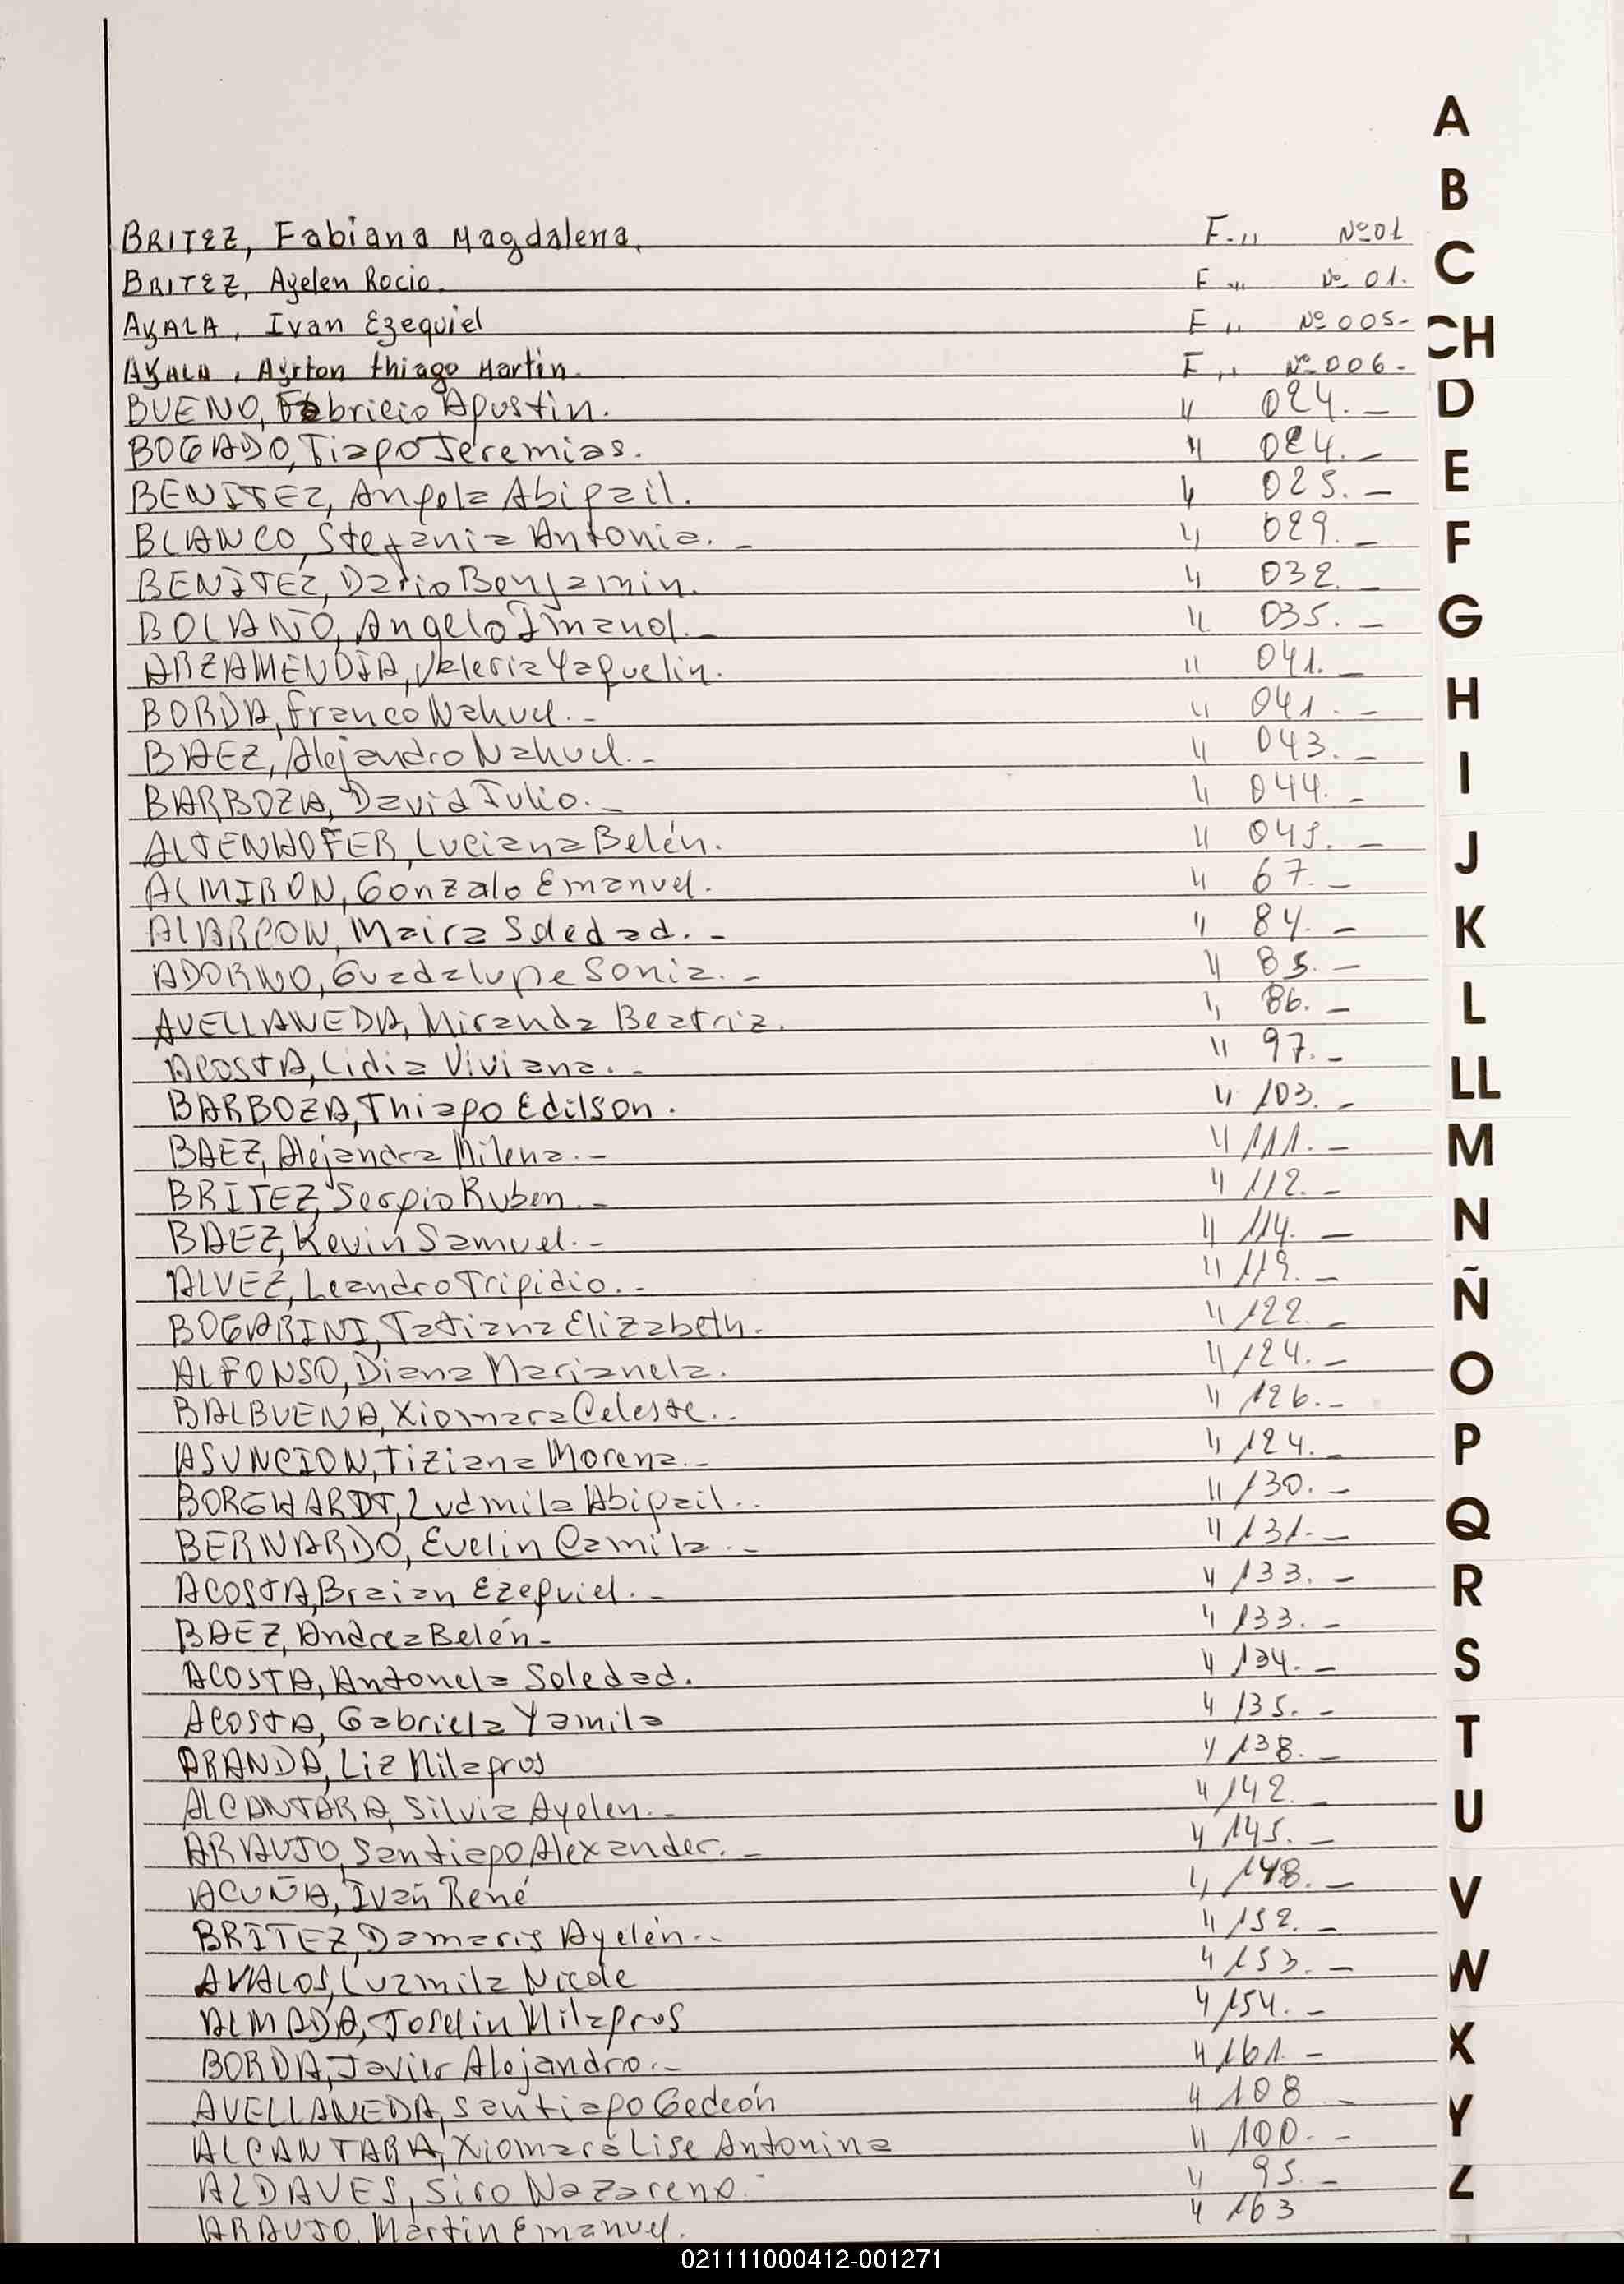 BRITEZ, Fabiana Magdalena. F. " Nº 01
BRITEZ, Ayelen Rocio. F " Nº 01.
AYALA, Ivan Ezequiel F " Nº 005-
AYALA, Ayrton thiago Martin. F " Nº 006-
BUENO, Fabricio Agustin. " 024.-
BOGADO, Tiago Jeremias. " 024.-
BENITEZ, Angela Abigail. " 025.-
BLANCO, Stefania Antonia.- " 029.-
BENITEZ, Dario Benjamin. " 032.-
BOLAÑO, Angelo Imanol.- " 035.-
ARZAMENDIA, Valeria Yaquelin. " 041.-
BORDA, Franco Nahuel.- " 041.-
BAEZ, Alejandro Nahuel.- " 043.-
BARBOZA, David Julio.- " 044.-
ALTENHOFER, Luciana Belén. " 045.-
ALMIRON, Gonzalo Emanuel. " 67.-
ALARCON, Maira Soledad.- " 84.-
ADORNO, Guadalupe Sonia.- " 85.-
AVELLANEDA, Miranda Beatriz. " 86.-
ACOSTA, Lidia Viviana.- " 97.-
BARBOZA, Thiago Edilson. " 103.-
BAEZ, Alejandra Milena.- " 111.-
BRITEZ, Sergio Ruben.- " 112.-
BAEZ, Kevin Samuel.- " 114.-
ALVEZ, Leandro Trigidio.- " 119.-
BOGARINI, Tatiana Elizabeth. " 122.-
ALFONSO, Diana Marianela. " 124.-
BALBUENA, Xiomara Celeste.- " 126.-
ASUNCION, Tiziana Morena.- " 124.-
BORGHARDT, Ludmila Abigail.. " 130.-
BERNARDO, Evelin Camila.- " 131.-
ACOSTA, Braian Ezequiel.- " 133.-
BAEZ, Andrea Belén- " 133.-
ACOSTA, Antonela Soledad. " 134.-
ACOSTA, Gabriela Yamila " 135.-
ARANDA, Liz Milagros " 138.-
ALCANTARA, Silvia Ayelen.- " 142.-
ARAUJO, Santiago Alexander.- " 145.-
ACUÑA, Iván René " 148.-
BRITEZ, Damaris Ayelén.- " 152.-
AVALOS, Luzmila Nicole " 153.-
ALMADA, Joselin Milagros " 154.-
BORDA, Javier Alejandro.- " 161.-
AVELLANEDA, Santiago Gedeón " 108-
ALCANTARA, Xiomara Lise Antonina " 100.-
ALDAVES, Siro Nazareno. " 95.-
ARAUJO, Martin Emanuel. " 163
A
B
C
CH
D
E
F
G
H
I
J
K
L
LL
M
N
Ñ
O
P
Q
R
S
T
U
V
W
X
Y
Z
021111000412-001271